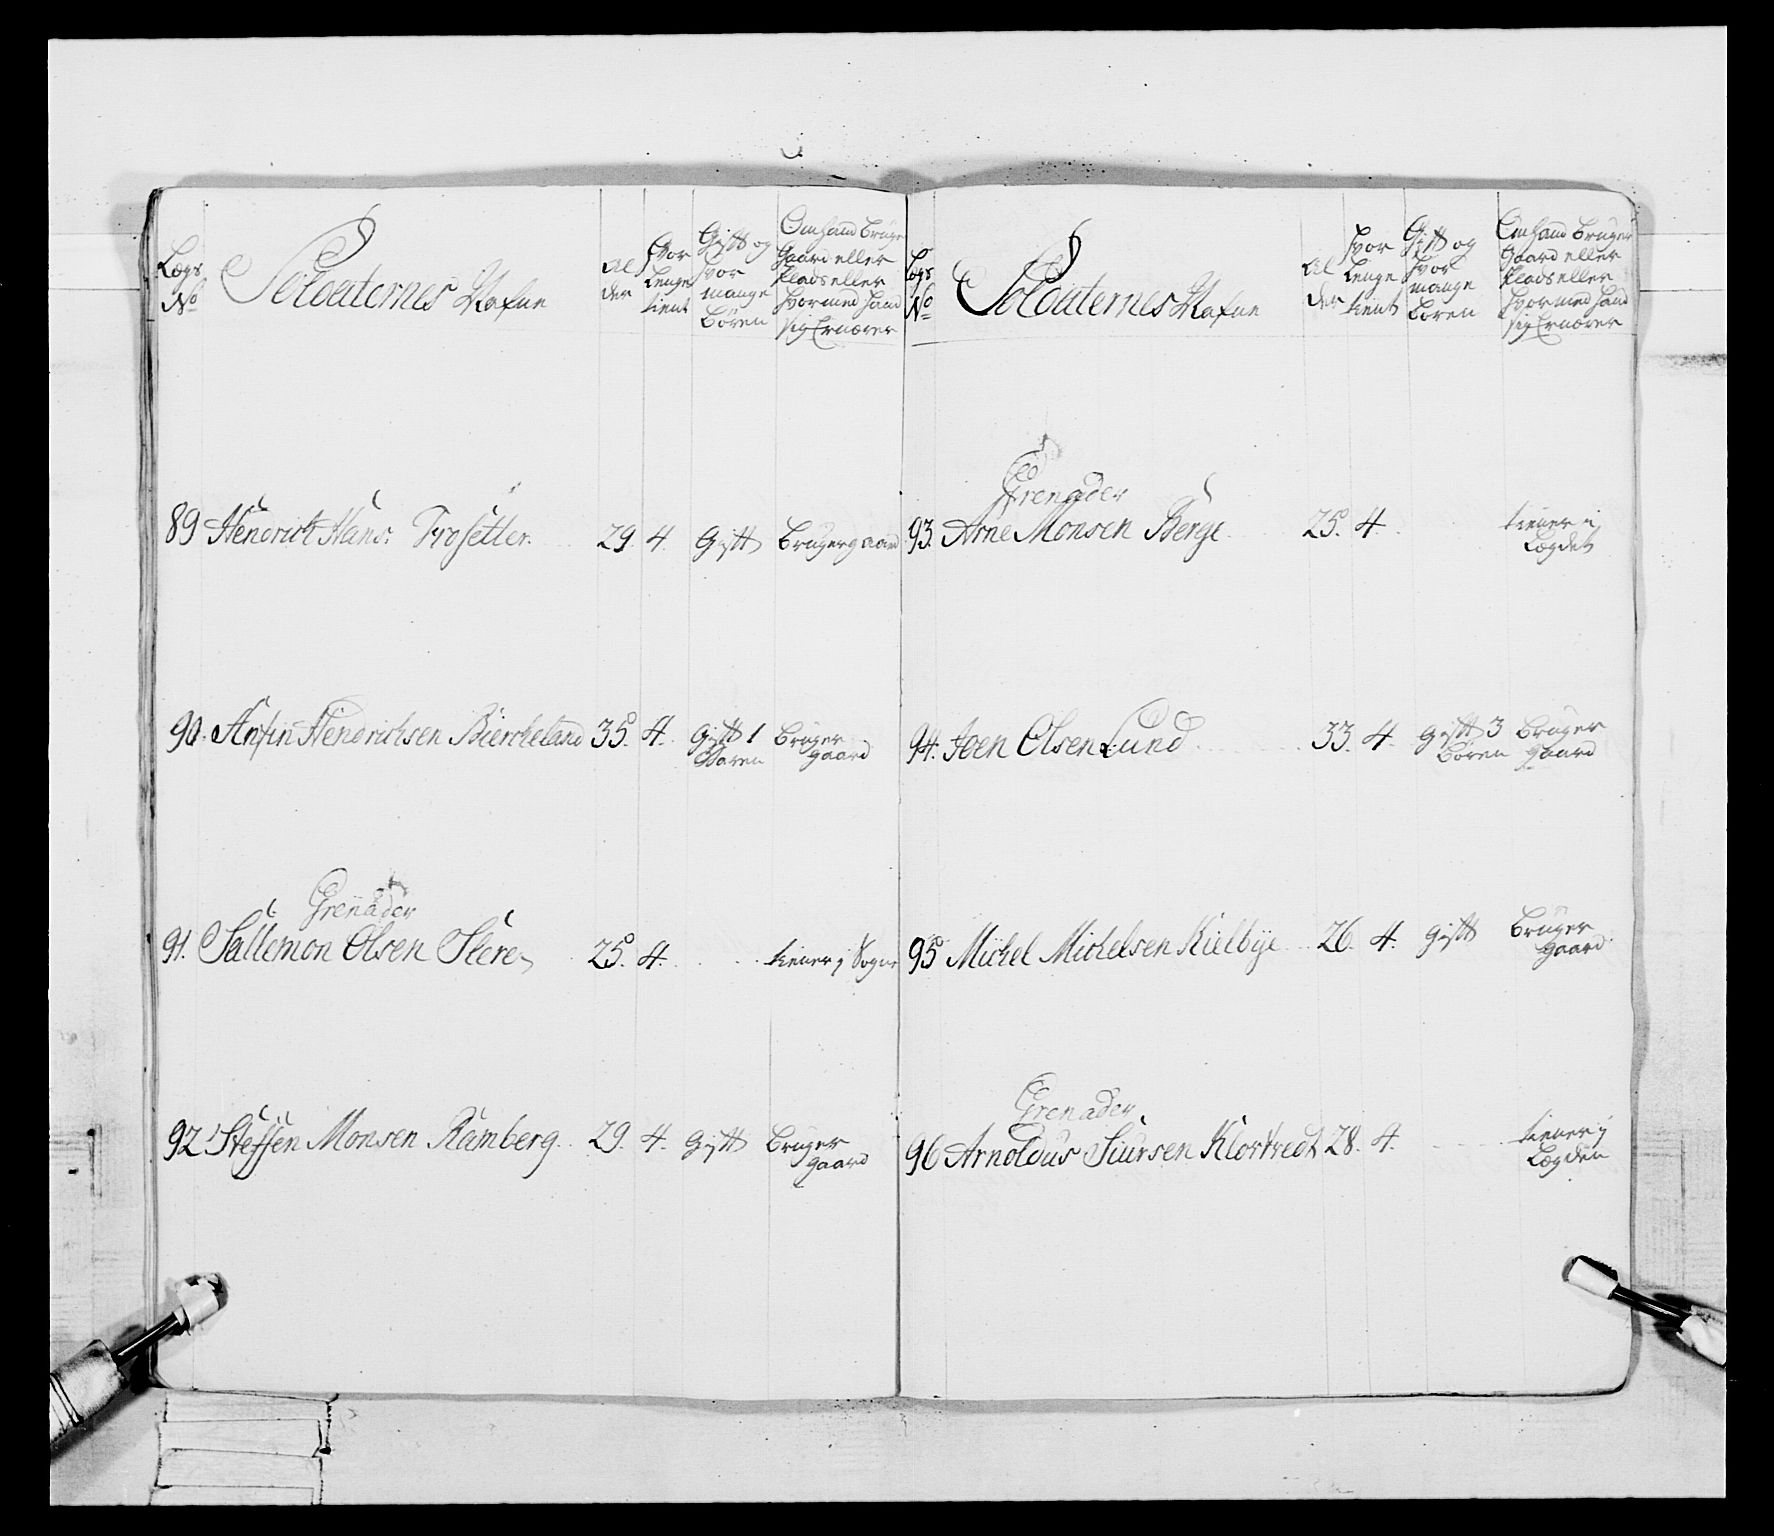 Lægs No
Soldaternes Nafne
Al der
Hvor Lenge tient
Gift og hvor mange Børen
Om hand bruger Gaard eller Plads eller hvormed hand sig Ernærer
89 Hendrich Hans: Frosetter. 29. 4. Gift Bruger gaard
90. Anfin Hendrichsen Biercheland 35. 4. Gift 1 Baren Bruger gaard
Grenader
91. Sallemon Olsen Stere 25. 4. tiener i Sogne
92 Steffen Monsen Ramberg. 29. 4. Gift Bruger gaard
Lægs No
Soldaternes Nafne
Al der
hvor Lenge tient
Gift og hvor mange Børen
Om hand bruger Gaard eller Plads eller hvormed hand sig Ernærer
Grenader
93. Arne Monsen Berge 25. 4. tiener i Lægdet
94. Joen Olsen Lund 33. 4. Gift 3 Børen Bruger gaard
95 Michel Michelsen Kielbye 26. 4. Gift Bruger gaard
Grenader
96 Arnoldus Siursen 28. 4. tiener i Lægden